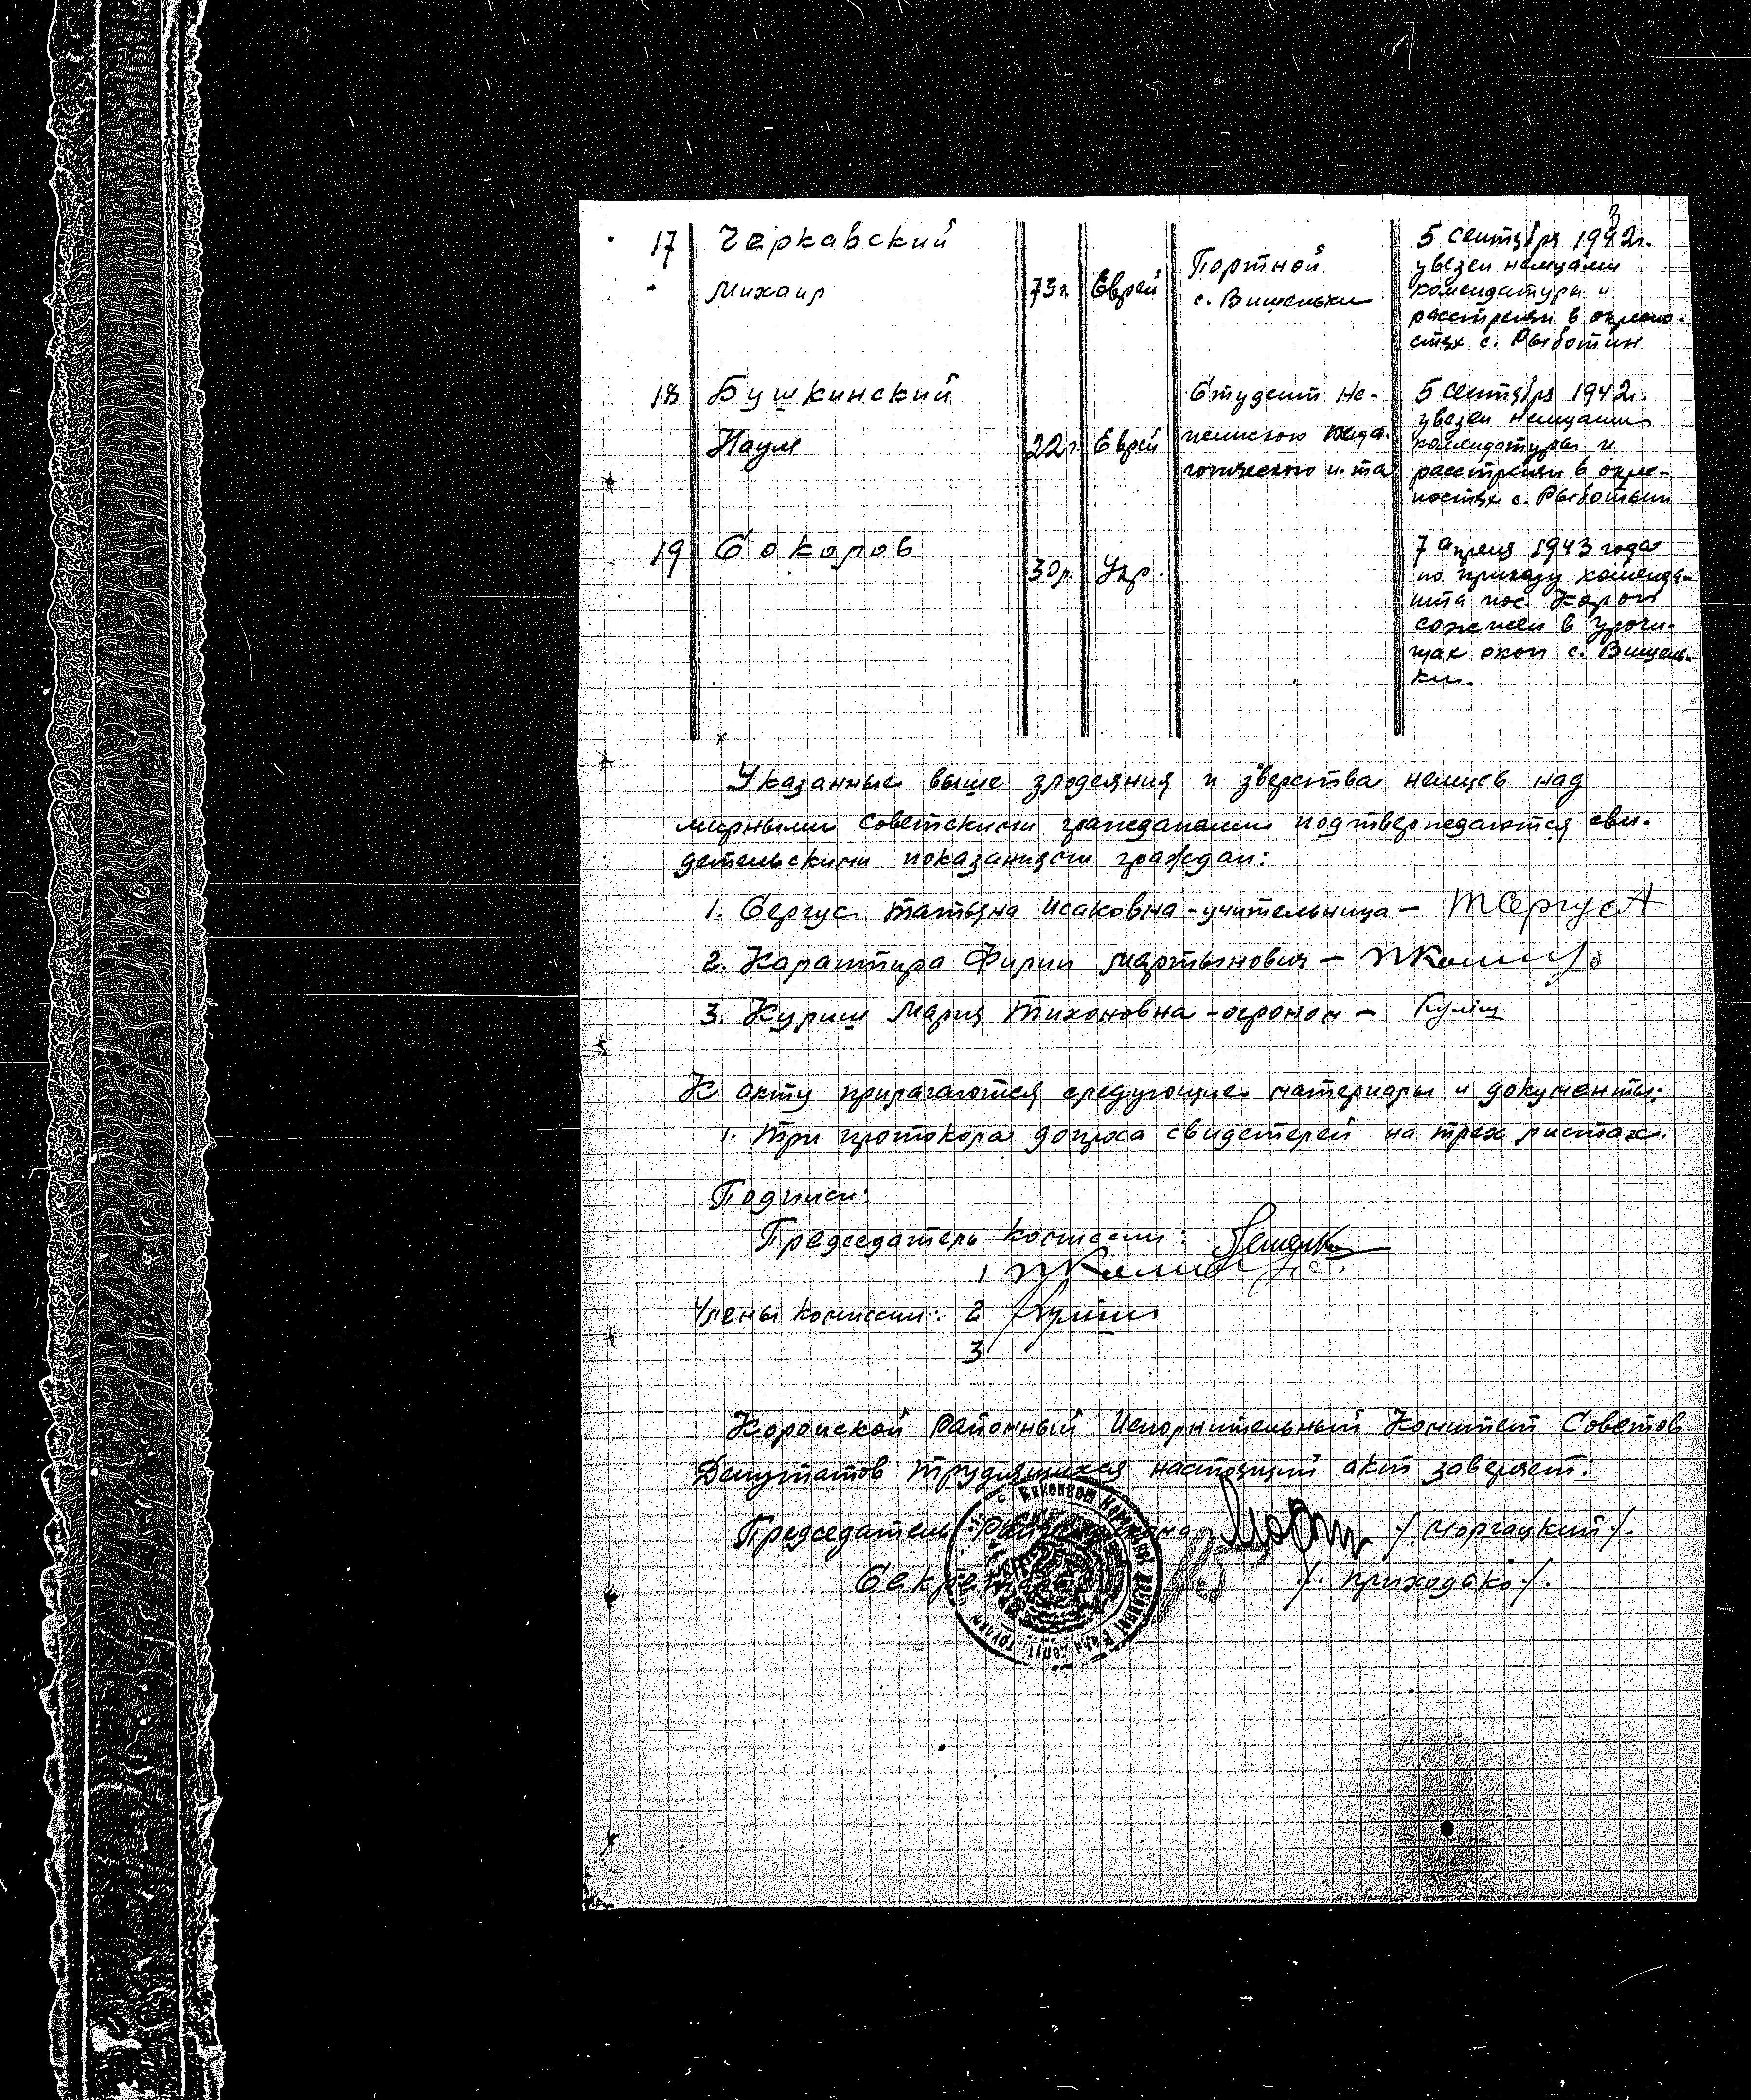 3
17 Черкавский
Михаил 73 г. Еврей Портной с. Вишеньки
5 сентября 1942 г.
увезен немцами
комендатуры и
расстрелян в окресно-
стях с. Рыботин
18 Бушкинский
Наум 22 г. Еврей Студент Не-
жинского педа-
гогического и-та
5 сентября 1942 г.
увезен немцами
комендатуры и
расстрелян в окре-
ностях с. Рыботын
19 Соколов 30 л. Укр.
7 апреля 1943 года
по приказу коменда-
нта пос. Короп
сожжен в урочи-
щах окол с. Вишень-
ки.
Указанные выше злодеяния и зверства немцев над
мирными советскими гражданами подтверждаются сви-
детельскими показаниями граждан:
1. Сергус Татьяна Исаковна - учительница - ТСергусА
2. Калантира Фирип Мартынович -
3. Кулиш Мария Тихоновна - агроном - Куліш
К акту прилагаются следующие материалы и документы:
1. Три протокола допроса свидетелей на трех листах.
Подписи:
Председатель комиссии:
1
Члены комиссии: 2 Куліш
3
Коропской Районный Исполнительный Комитет Советов
Депутатов Трудящихся настоящий акт заверяет.
Председатель /. Моргацкий /.
Секрет /. Приходько /.